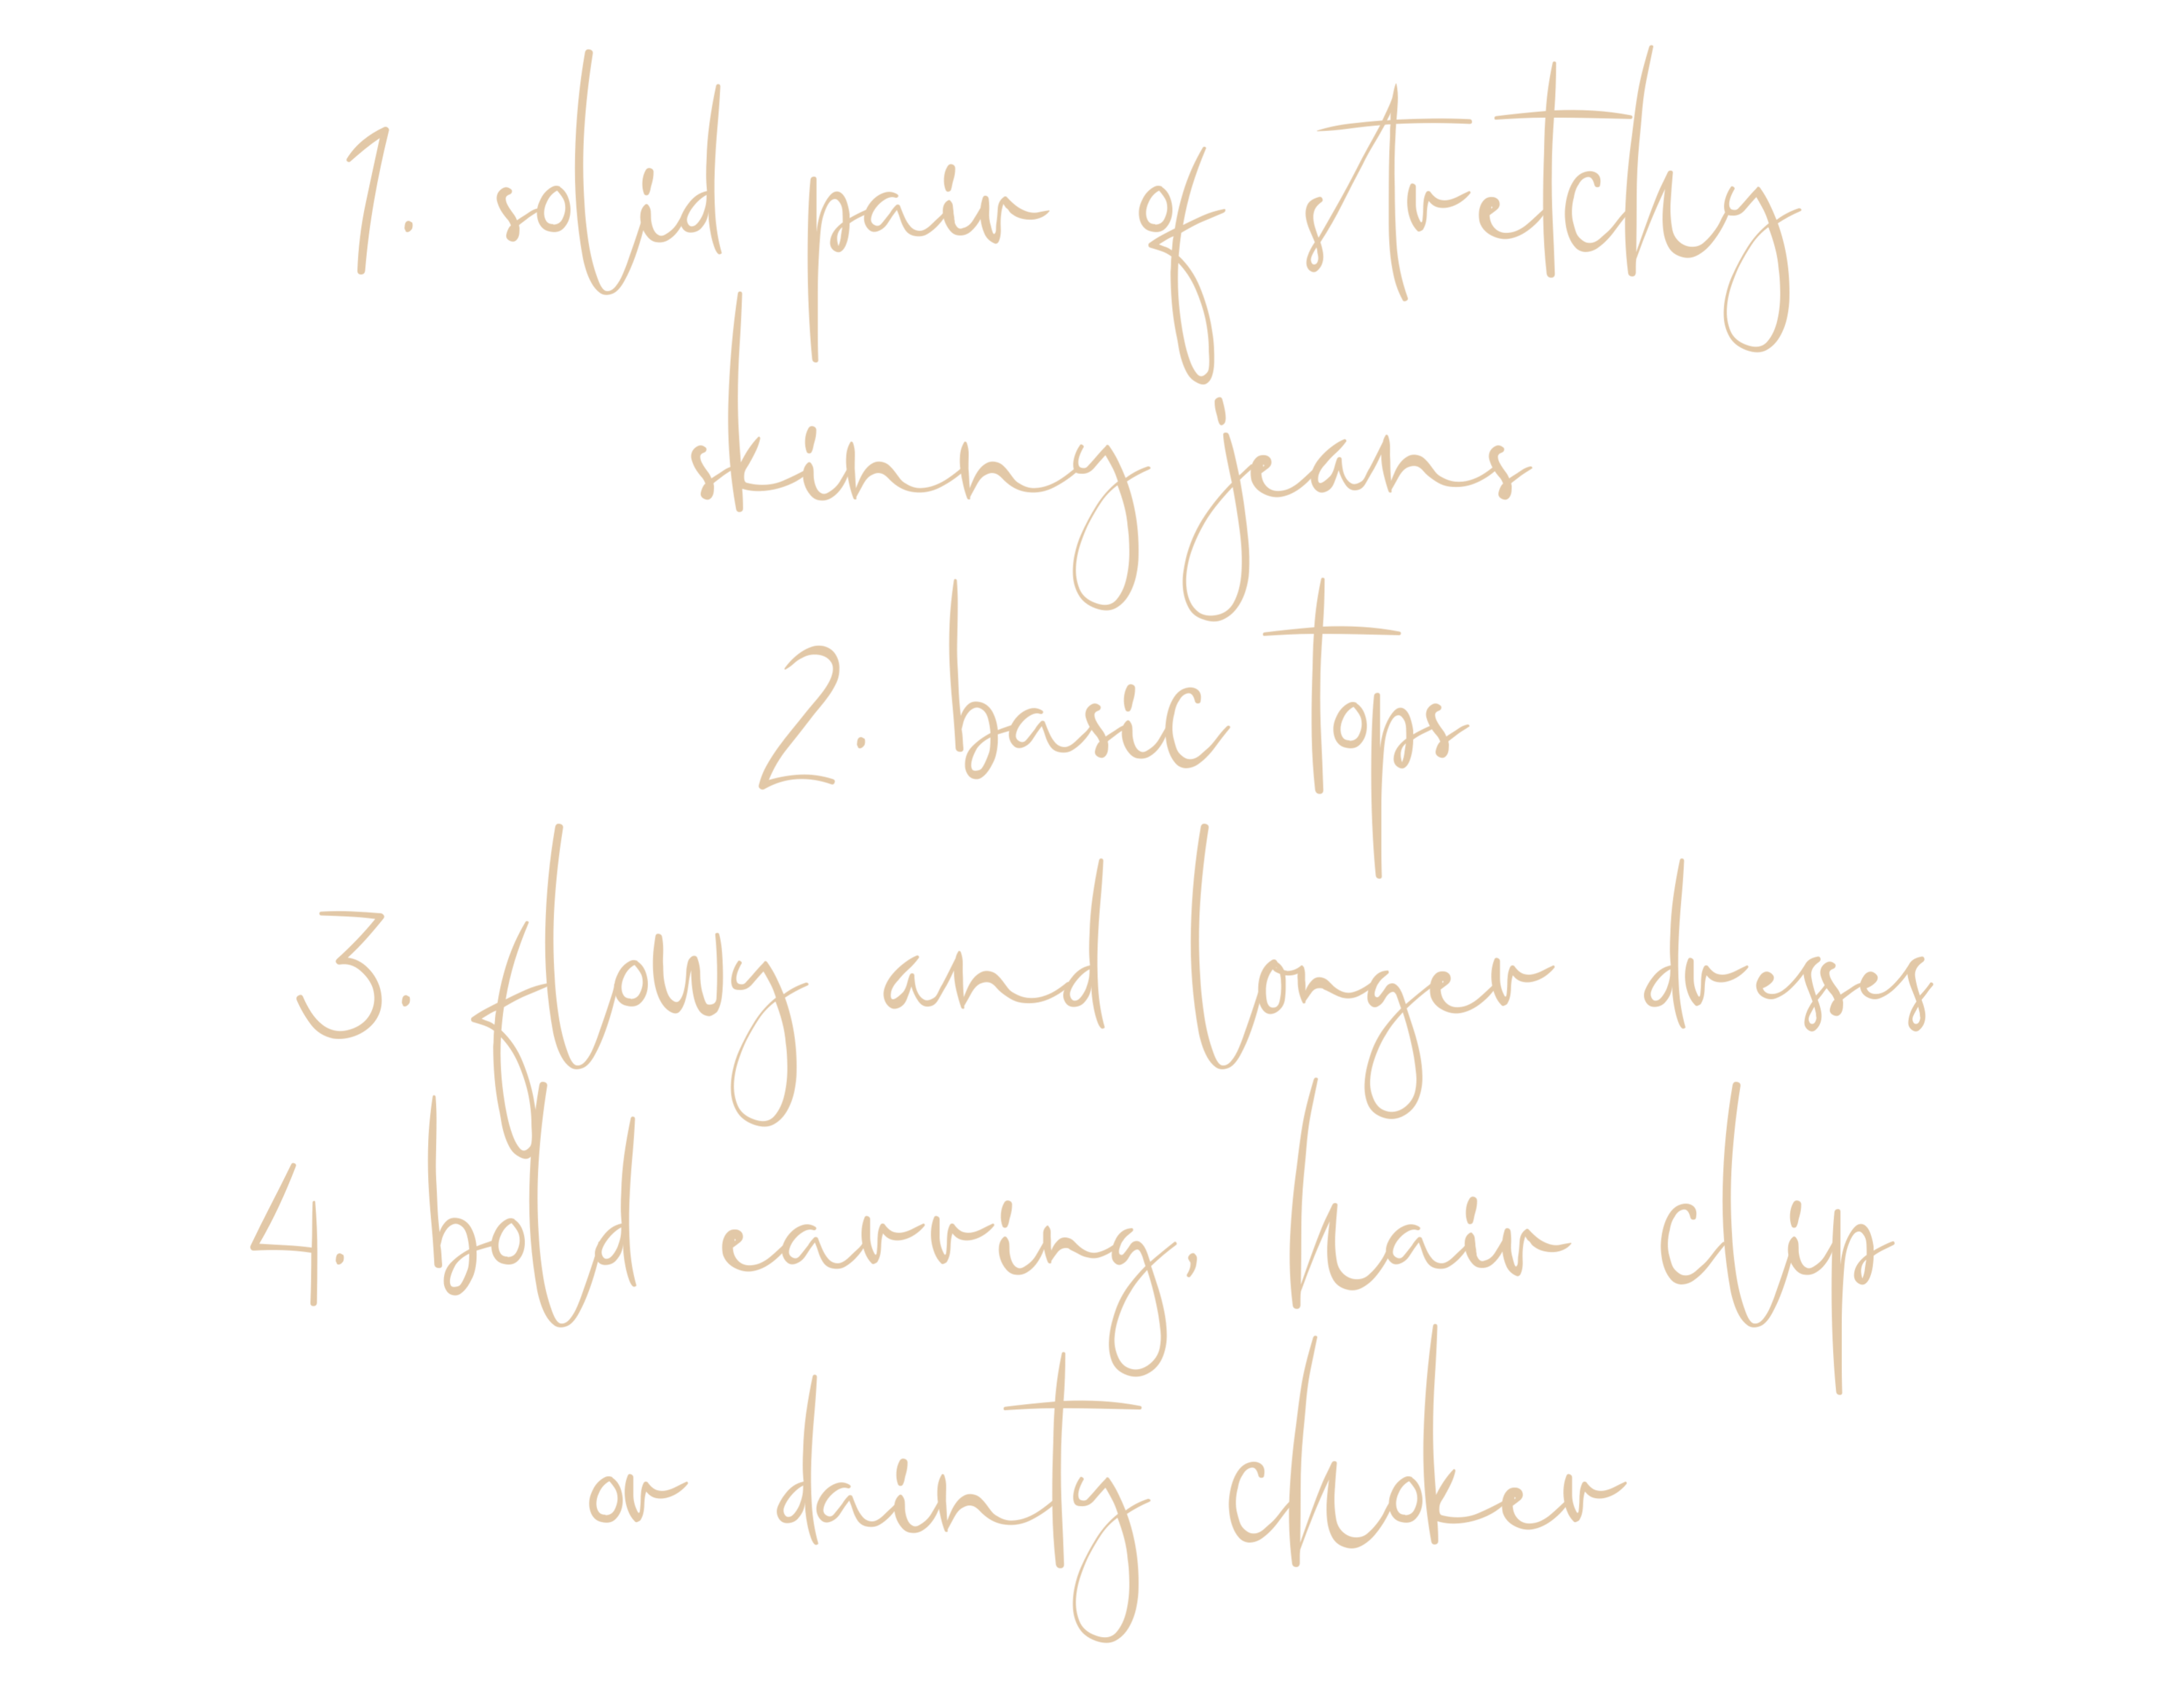 1. solid pair of stretchy
skinny jeans
2. basic tops
3. flowy and longer dress
4. bold earring, hair clip
or dainty choker